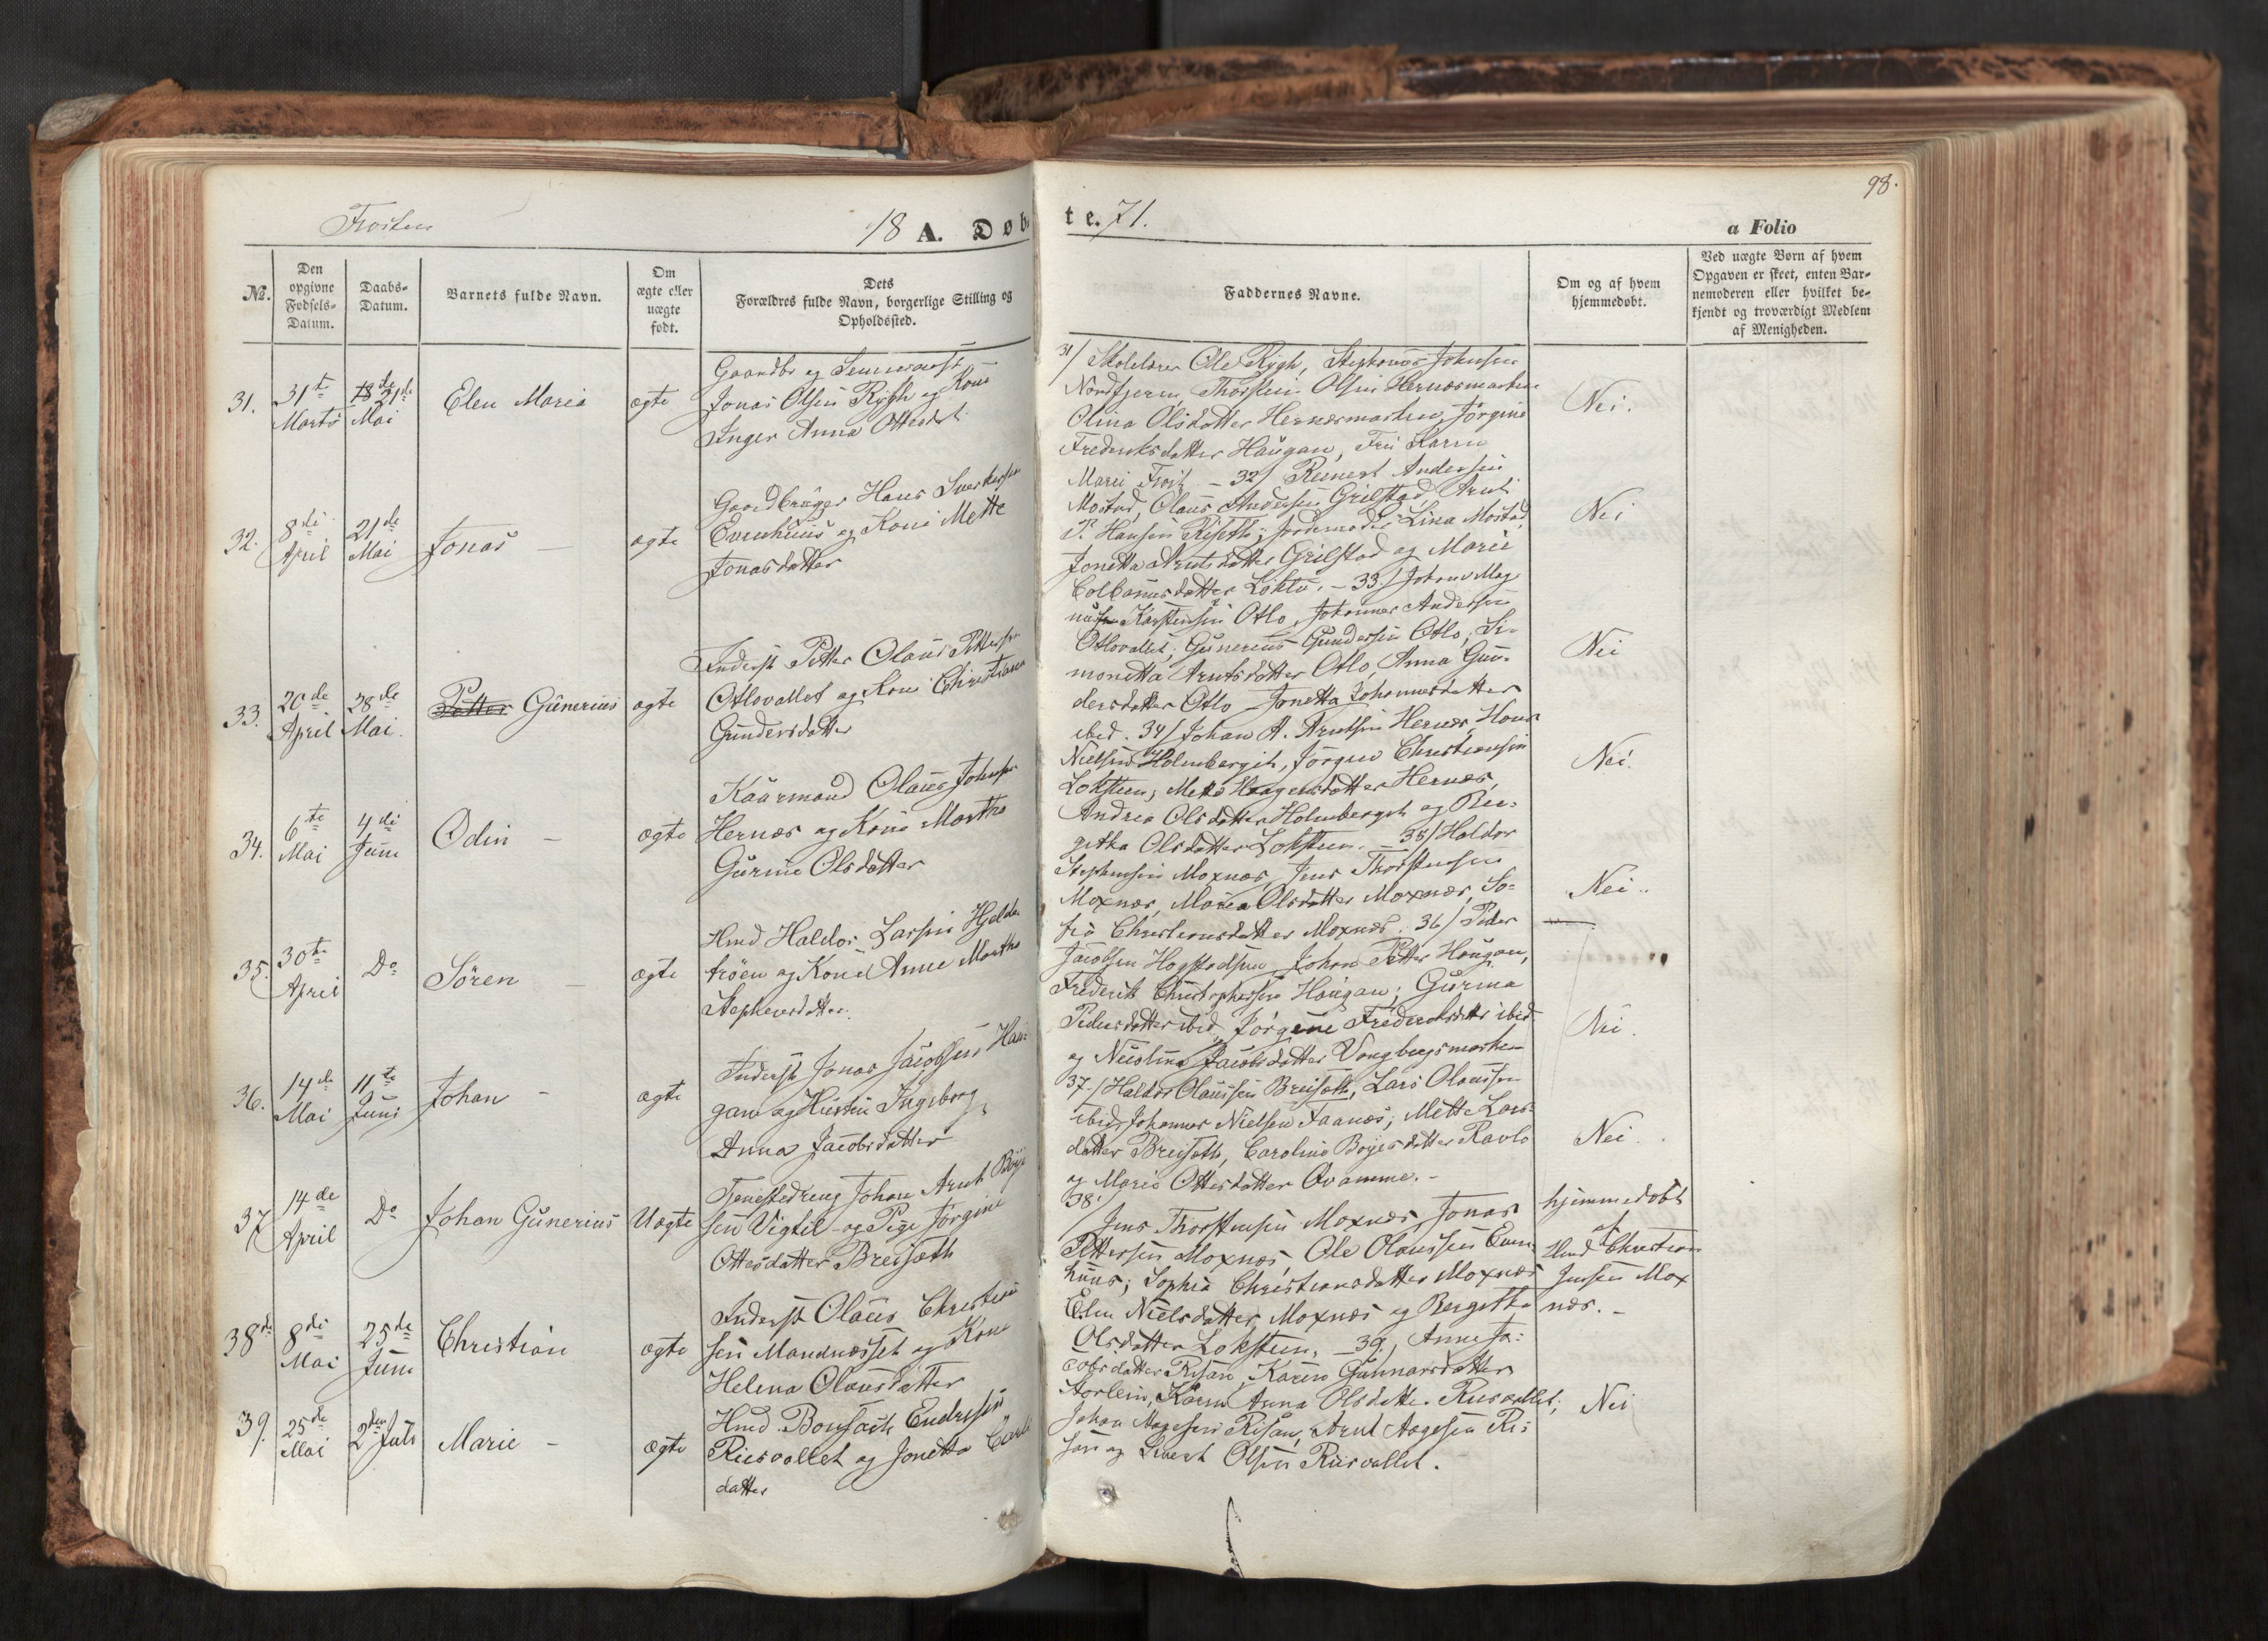 98.
Frosten
18 A. Døb
te. 71.
a Folio
No.
Den opgivne Fødsels-Datum.
Daabs-Datum.
Barnets fulde Navn.
Om ægte eller uægte født.
Dets Forældres fulde Navn, borgerlige Stilling og Opholdssted.
Faddernes Navne.
Om og af hvem hjemmedøbt.
Ved uægte Børn af hvem Opgaven er skeet, enten Barnemoderen eller hvilket bekjendt og troværdigt Medlem af Menigheden.
31. 31te Marts 21de Mai Elen Maria ægte
Gaardbr og
Jonas Olsen Rygh og Kone
Inger Anna Ottesdt
32. 8de April 21de Mai Jonas – ægte
Gaardbruger Hans Sverkersen
Evenhuus og Kone Mette
Jonasdatter
33. 20de April 28de Mai. Petter Gunerius ægte
Inderst Petter Olaus Pettersen
Otlovallet og Kone Christiana
Gundersdatter
34. 6te Mai 4de Juni Odin – ægte
Kaarmand Olaus Johnsen
Hernæs og Kone Martha
Gurine Olsdatter
35. 30te April Do Sören – ægte
Hmd Haldor Larsen Hjelde
trøen og Kone Anne Martha
Stephensdatter.
36. 14de Mai 11te Juni Johan – ægte
Inderst Jonas Jacobsen Hau=
gan og Hustru Ingeborg
Anna Jacobsdatter
37 14de April Do Johan Gunerius Uægte
Tjenestedreng Johan Arnt Böye
sen Vigtil og Pige Jörgine
Ottesdatter Breiseth
38de 8de Mai 25de Juni Christian ægte
Inderst Olaus Christian
sen Mandnæsset og Kone
Helena Olausdatter
39. 25de Mai 2den Juli Marie – ægte
Hmd Bonsach Endresen
Riisvallet og Jonetta Carls
datter
31/ Skolelærer Ole Rygh, Stephanus Johnsen
Nordfjeren, Thorstein Olsen Hernæsmarken
Olina Olsdatter Hernæsmarken, Jörgine
Frederiksdatter Haugan, Frü Karen
Marie Frost. – 32/ Reinert Andersen
Mostad, Olaus Andersen Grilstad, Arnt
P. Hansen Riseth; Jordemoder Lina Mostad,
Jonetta Arntsdatter Grilstad og Marie
Colbanusdatter Löktu. – 33/ Johan Mag=
nus Karstensen Otlo, Johannes Andersen
Otlovallet, Gunerius Gundersen Otlo; Si=
monetta Arntsdatter Otlo, Anna Gun=
dersdatter Otlo Jonetta Johannesdatter
ibid. 34/ Johan A. Arntsen Hernæs, Hans
Nielsen Holmberget, Jörgen Christiansen
Loksteen; Mette Haagensdatter Hernæs,
Andrea Olsdatter Holmberget og Ber=
getha Olsdatter Loksteen. – 35/ Haldor
Stephensen Moxnæs, Jens Thorstensen
Moxnæs, Maria Olsdatter Moxnæs, So=
fia Christiansdatter Moxnæs. 36/ Peder
Jacobsen Hogstadsen, Johan Petter Haugan,
Frederik Christophersen Haugan; Gurina
Pedersdatter ibid, Jörgine Frederiksdatter ibid
og Nicoline Jacobsdatter Vangbergsmarken
37/ Haldor Olaussen Breiseth, Lars Olaussen
ibid, Johannes Nielsen Faanes; Mette Lars=
datter Breiseth, Caroline Böyesdatter Ravlo
og Marie Ottesdatter Qvamme. –
38/
Jens Thorstensen Moxnæs, Jonas
Pettersen Moxnæs, Ole Olaussen Even=
huus; Sophia Christiansdatter Moxnæs
Elen Nielsdatter Moxnæs og Bergetha
Olsdatter Loksteen. – 39/ Anne Ja=
cobsdatter Risan, Karen Gunnarsdatter
Karen Anna Olsdatter Riisvallet;
Johan Aagesen Risan, Arnt Aagesen Ri=
san og Sivert Olsen Riisvallet.
Nei.
Nei
Nei
Nei.
Nei.
Nei.
Nei.
hjemmedøbt
af
Hmd Christian
Jensen Mox
næs. –
Nei